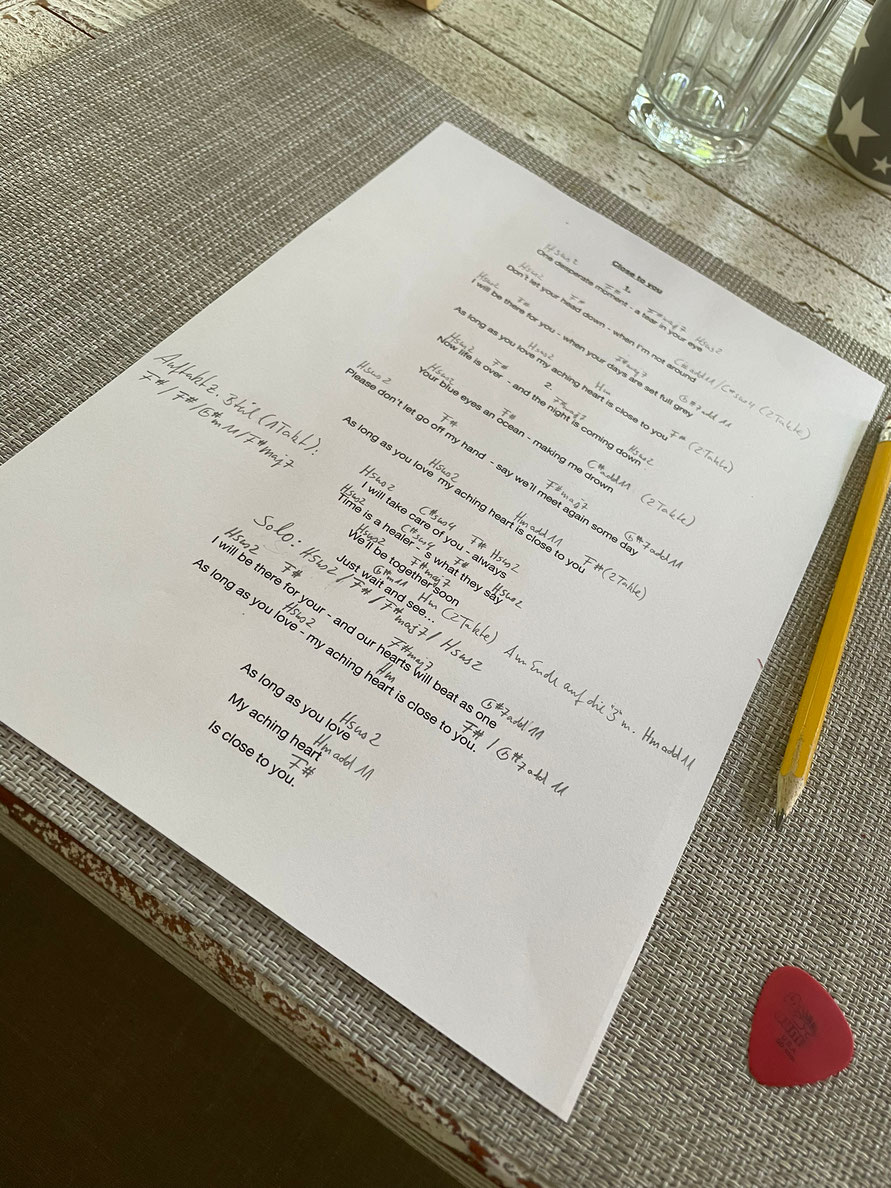 Close to you
1.
Hsus2 F# F#maj7 Hsus2
One desperate moment - a tear in your eye
Hsus2 F# C#add11 / C#sus4 (2Takte)
Don't let your head down - when I'm not around
Hsus2 F# F#maj7 G#7add11
I will be there for you - when your days are set full grey
Hsus2 Hm F# (2Takte)
As long as you love my aching heart is close to you
2.
Hsus2 F# F#maj7 Hsus2
Now life is over - and the night is coming down
Hsus2 F# C#add11 (2Takte)
Your blue eyes an ocean - making me drown
Hsus2 F# F#maj7 G#7add11
Please don't let go off my hand - say we'll meet again some day
Hsus2 Hmadd11 F# (2Takte)
As long as you love my aching heart is close to you
Auftakt z. B teil (1Takt):
F# / F# / G#m11 / F#maj7
Hsus2 C#sus4 F# Hsus2
I will take care of you - always
Hsus2 C#sus4 F# Hsus2
Time is a healer - s what they say
Hsus2 F#maj7
We'll be together soon
G#m11 Hm (2Takte)
Just wait and see...
Solo: Hsus2 / F# / F#maj7 / Hsus2 Am Ende auf die 3 m. Hmadd11
Hsus2 F# F#maj7 G#7add11
I will be there for your - and our hearts will beat as one
Hsus2 Hm F# / G#7add11
As long as you love - my aching heart is close to you.
Hsus2
As long as you love
Hmadd11
My aching heart
F#
Is close to you.